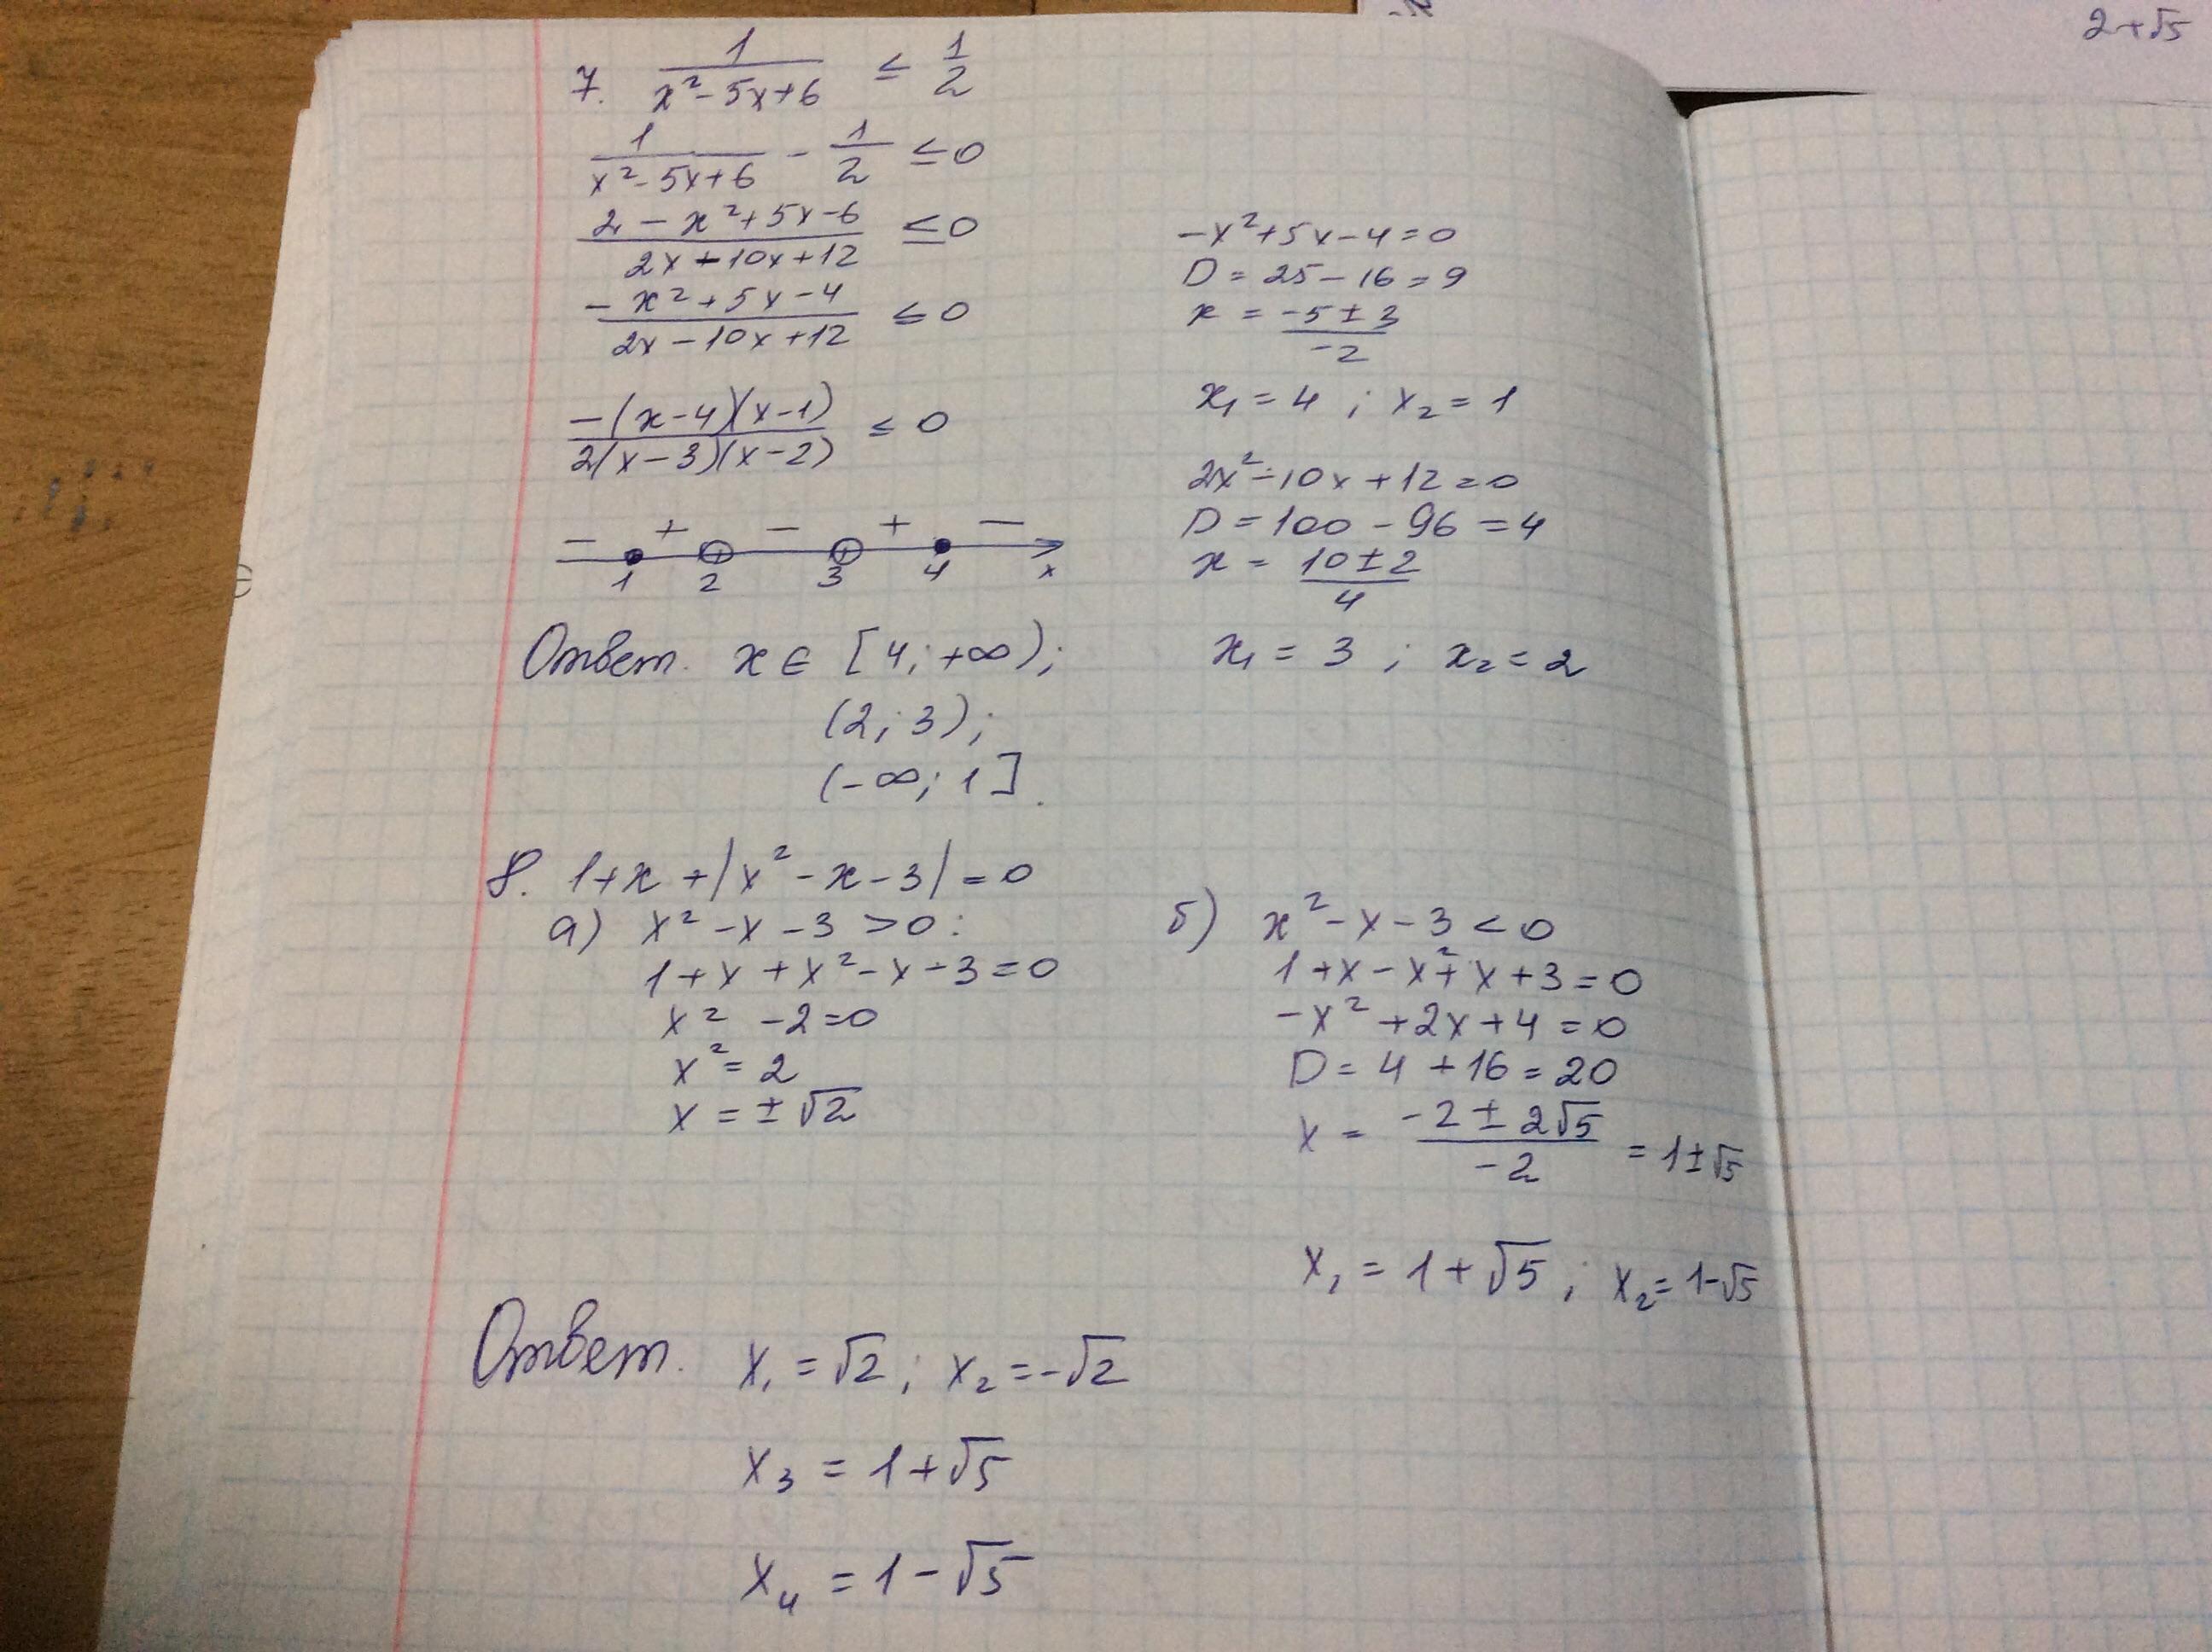 2+√5
7. 1/(x²-5x+6) ≤ 1/2
1/(x²-5x+6) - 1/2 ≤0
(2-x²+5x-6)/(2x-10x+12) ≤0
(-x²+5x-4)/(2x-10x+12) ≤0
(-(x-4)(x-1))/(2(x-3)(x-2)) ≤ 0
- + - + -
1 2 3 4 x
Ответ. x ∈ [4; +∞);
(2; 3);
(-∞; 1].
-x²+5x-4=0
D = 25-16=9
x = (-5±3)/(-2)
x₁ = 4 ; x₂ = 1
2x²-10x+12=0
D=100-96=4
x = (10±2)/4
x₁ = 3 ; x₂ = 2
8. 1+x+|x²-x-3|=0
а) x²-x-3>0:
1+x+x²-x-3=0
x² -2=0
x²=2
x = ±√2
б) x²-x-3<0
1+x-x²+x+3=0
-x²+2x+4=0
D=4+16=20
x = (-2±2√5)/(-2) = 1±√5
x₁ = 1+√5 ; x₂=1-√5
Ответ. x₁ = √2 ; x₂=-√2
x₃ = 1+√5
x₄ = 1-√5